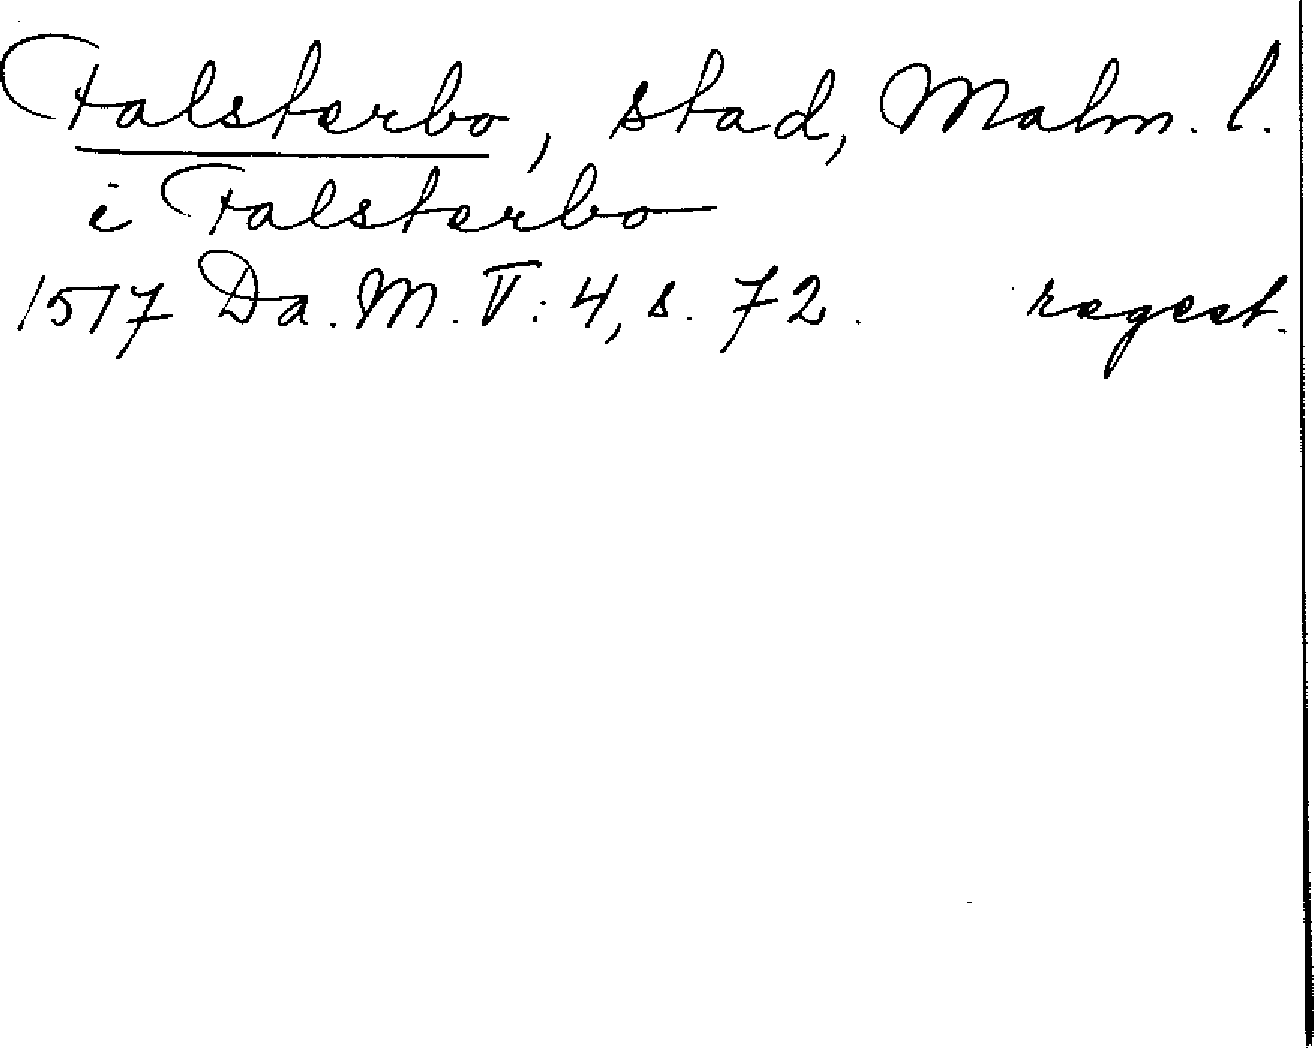 Falsterbo, stad, Malm. l.
i Falsterbo
1517 Da. M. V: 4, s. 72. regest.